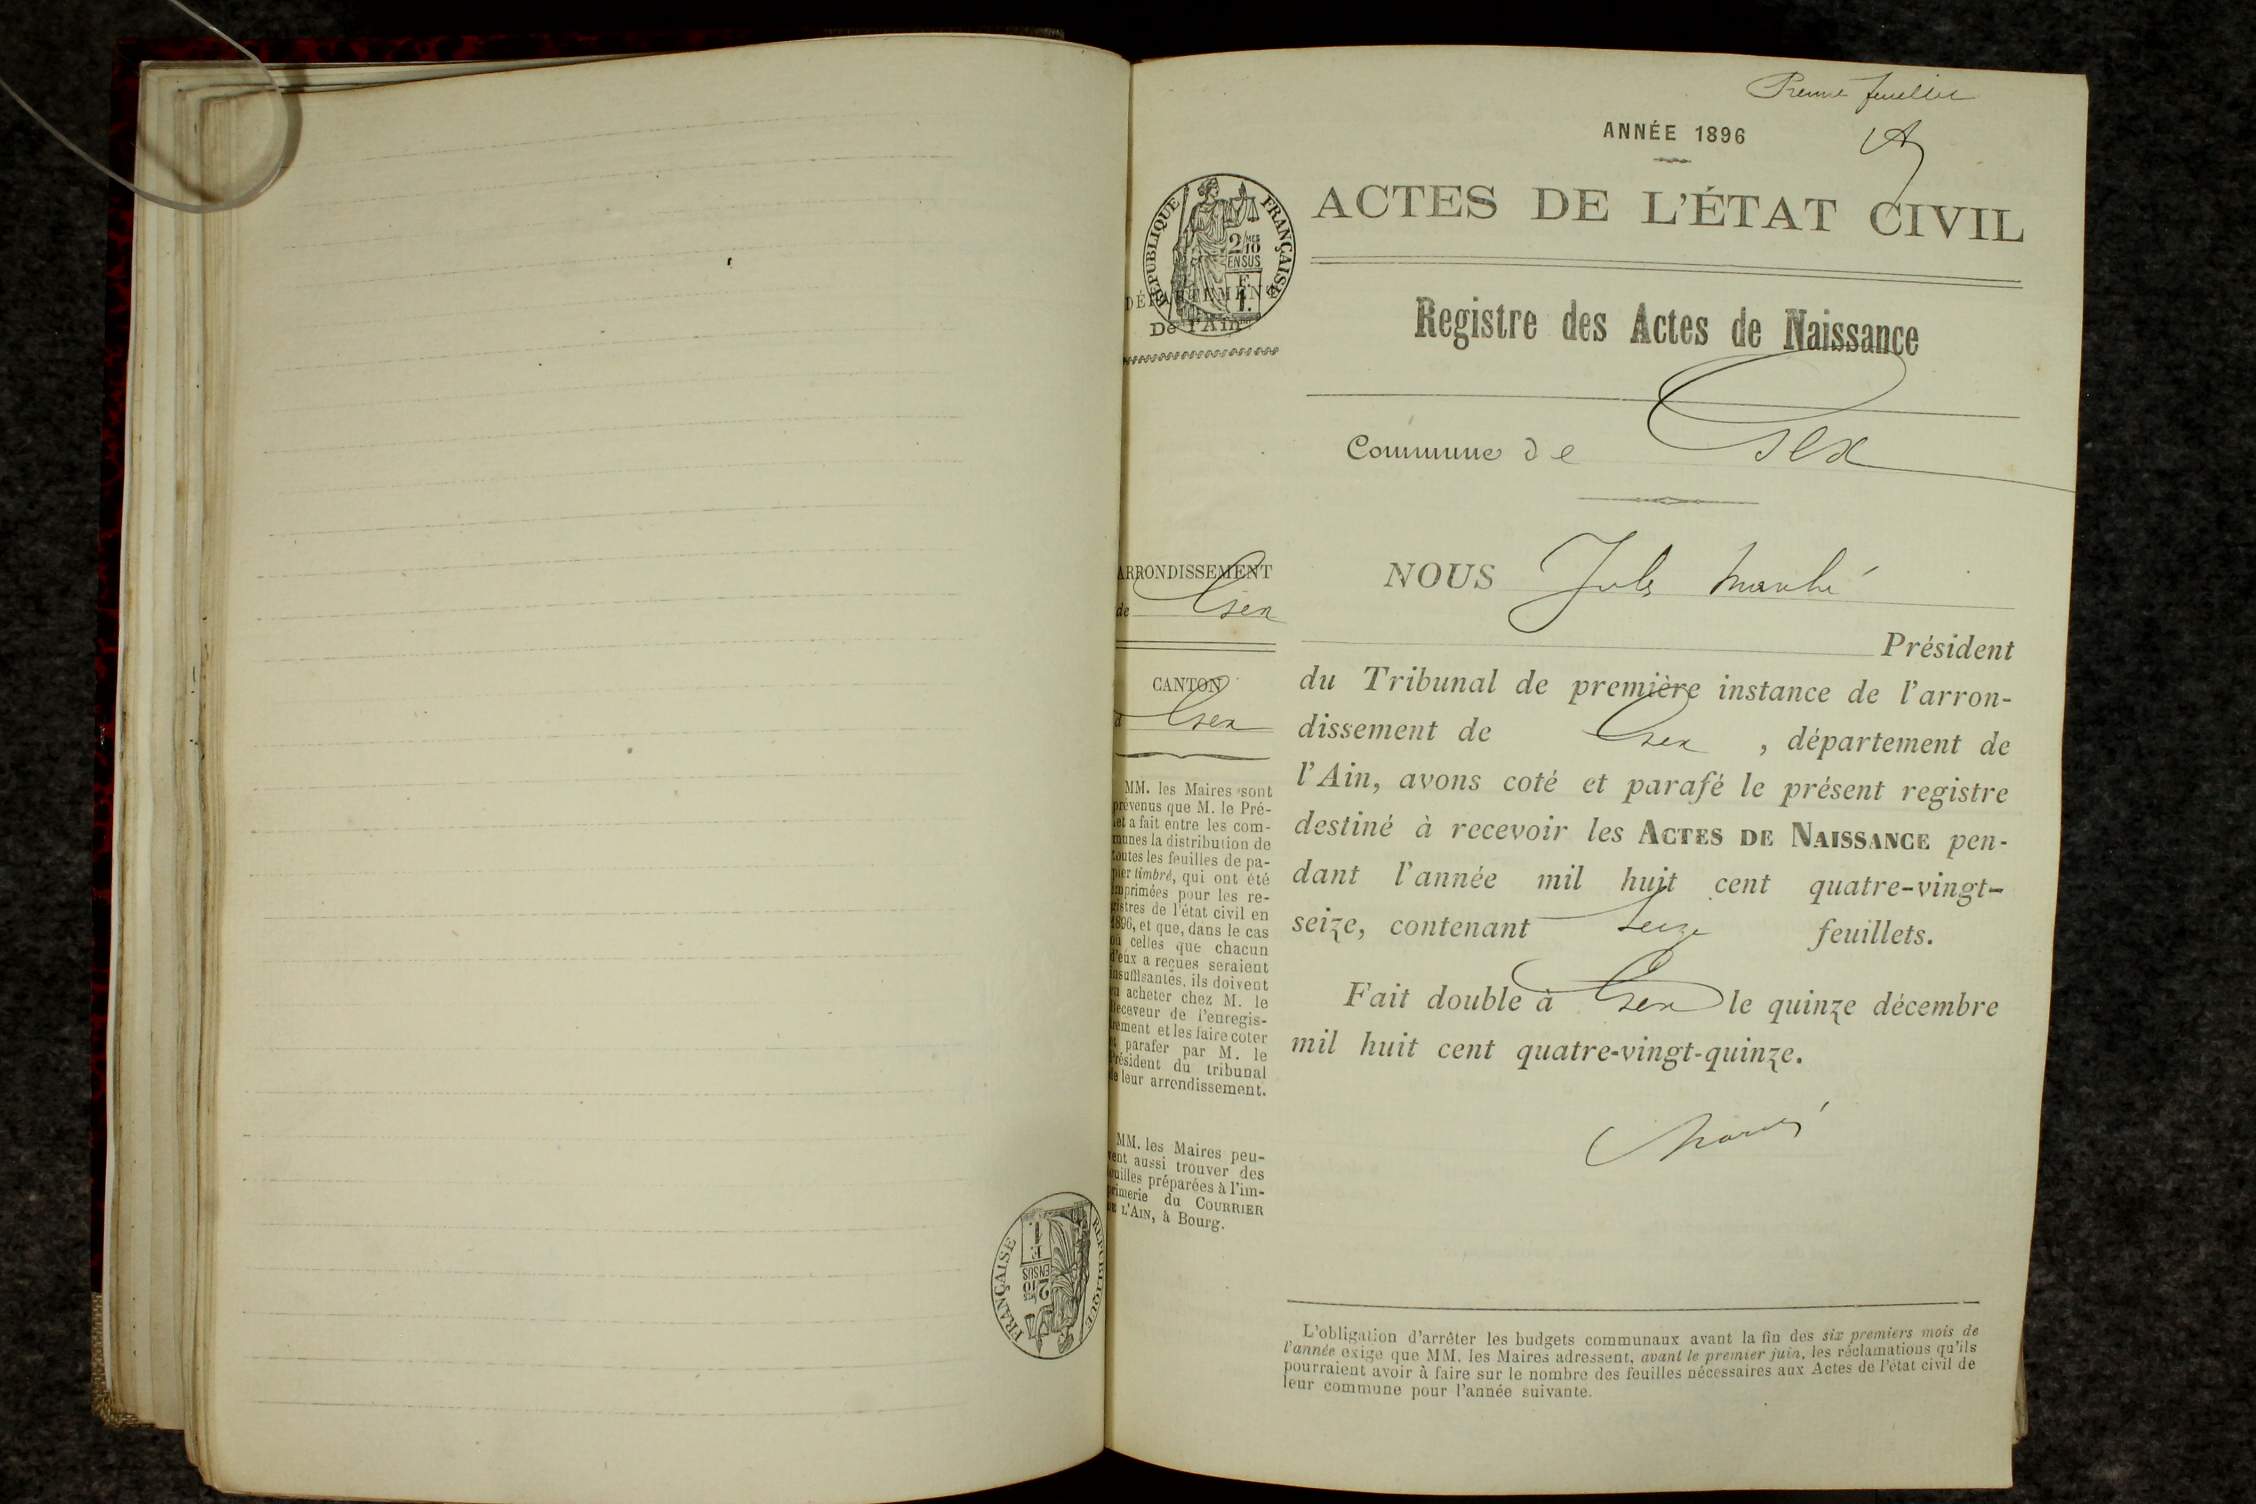 Premier feuillet
ANNÉE 1896
ACTES DE L'ÉTAT CIVIL
RÉPUBLIQUE FRANÇAISE
2/10 MES
EN SUS
1 F.
DÉPARTEMENT
De l'Ain
Registre des Actes de Naissance
Commune de Gex
ARRONDISSEMENT
de Gex
CANTON
d Gex
MM. les Maires sont
prévenus que M. le Pré-
fet a fait entre les com-
munes la distribution de
toutes les feuilles de pa-
pier timbré, qui ont été
imprimées pour les re-
gistres de l'état civil en
1896, et que, dans le cas
où celles que chacun
d'eux a reçues seraient
insuffisantes, ils doivent
en acheter chez M. le
Receveur de l'enregis-
trement et les faire coter
et parafer par M. le
Président du tribunal
de leur arrondissement.
MM. les Maires peu-
vent aussi trouver des
feuilles préparées à l'im-
primerie du COURRIER
DE L'AIN, à Bourg.
NOUS Jules
Président
du Tribunal de première instance de l'arron-
dissement de Gex , département de
l'Ain, avons coté et parafé le présent registre
destiné à recevoir les ACTES DE NAISSANCE pen-
dant l'année mil huit cent quatre-vingt-
seize, contenant seize feuillets.
Fait double à Gex le quinze décembre
mil huit cent quatre-vingt-quinze.
L'obligation d'arrêter les budgets communaux avant la fin des six premiers mois de
l'année exige que MM. les Maires adressent, avant le premier juin, les réclamations qu'ils
pourraient avoir à faire sur le nombre des feuilles nécessaires aux Actes de l'état civil de
leur commune pour l'année suivante.
RÉPUBLIQUE FRANÇAISE
2/10 MES
EN SUS
1 F.